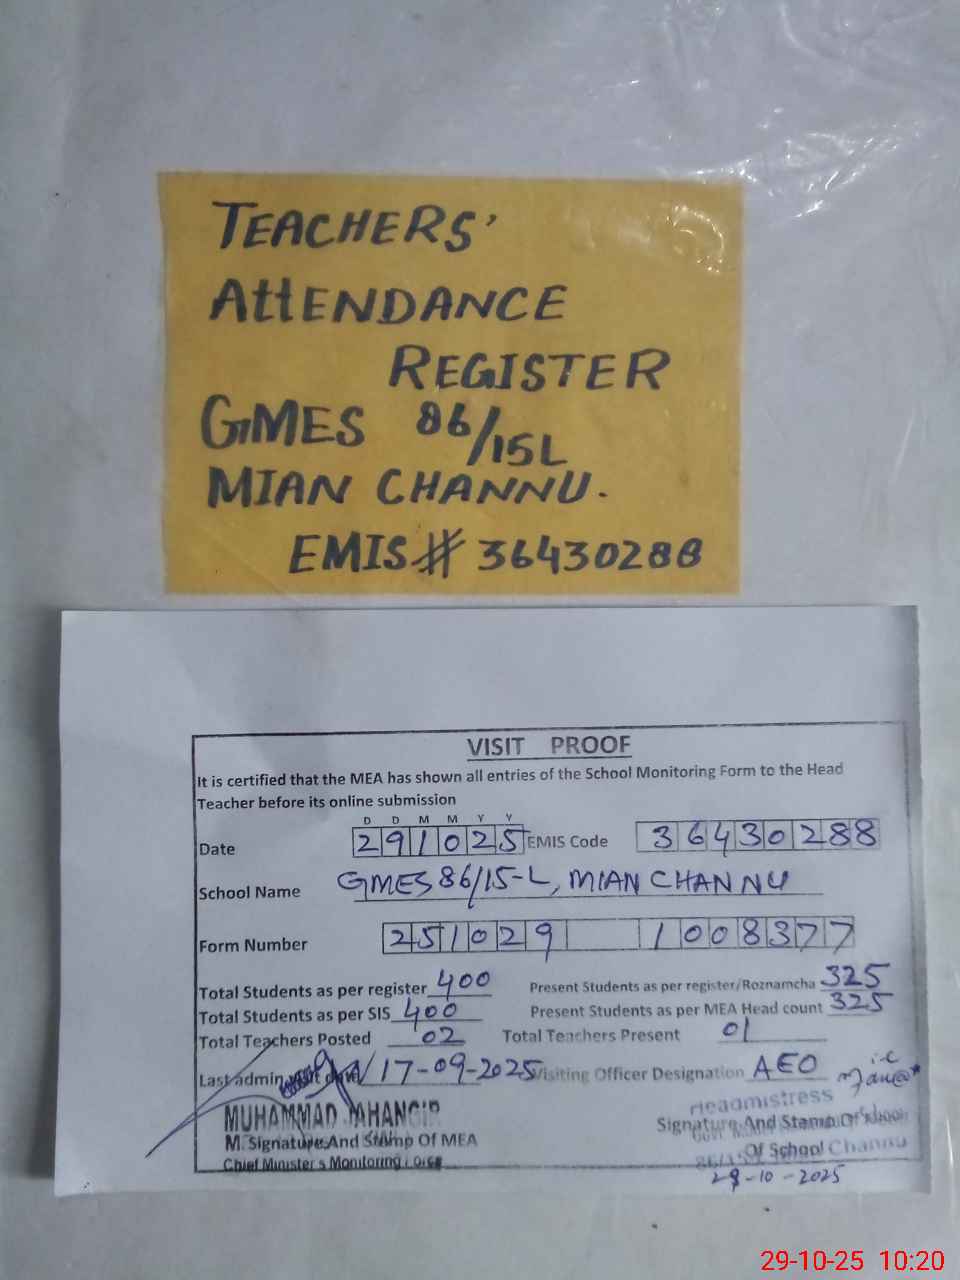 TEACHERS'
ATTENDANCE
REGISTER
GMES 86/15L
MIAN CHANNU.
EMIS # 36430288
VISIT PROOF
It is certified that the MEA has shown all entries of the School Monitoring Form to the Head
Teacher before its online submission
D D M M Y Y
Date 291025 EMIS Code 36430288
School Name GMES 86/15-L, MIAN CHANNU
Form Number 251029 1008377
Total Students as per register 400 Present Students as per register/Roznamcha 325
Total Students as per SIS 400 Present Students as per MEA Head count 325
Total Teachers Posted 02 Total Teachers Present 01
Last admin visit date 17-09-2025 Visiting Officer Designation AEO
i-c
MUHAMMAD JAHANGIR Headmistress
M. Signature And Stamp Of MEA Signature And Stamp Of School
Chief Minister's Monitoring Force Of School Channu
29-10-2025
29-10-25 10:20